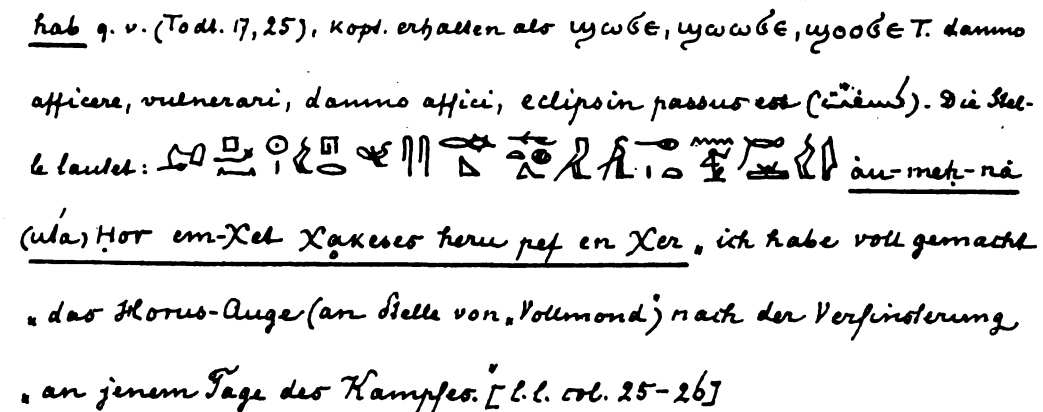 hab q. v. (Todt. 17, 25), kopt. erhalten als ϣωϭⲉ, ϣⲱⲱϭⲉ, ϣⲟⲟϭⲉ T. damno
afficere, vulnerari, damno affici, eclipsin passus est. Die Stel-
le lautet: áu-meḥ-ná
(uťa) Ḥor em-χet χaḳeses heru pef en χer „ich habe voll gemacht
„das Horus-Auge (an Stelle von „Vollmond") nach der Verfinsterung
„an jenem Tage des Kampfes." [l.l. col. 25-26]